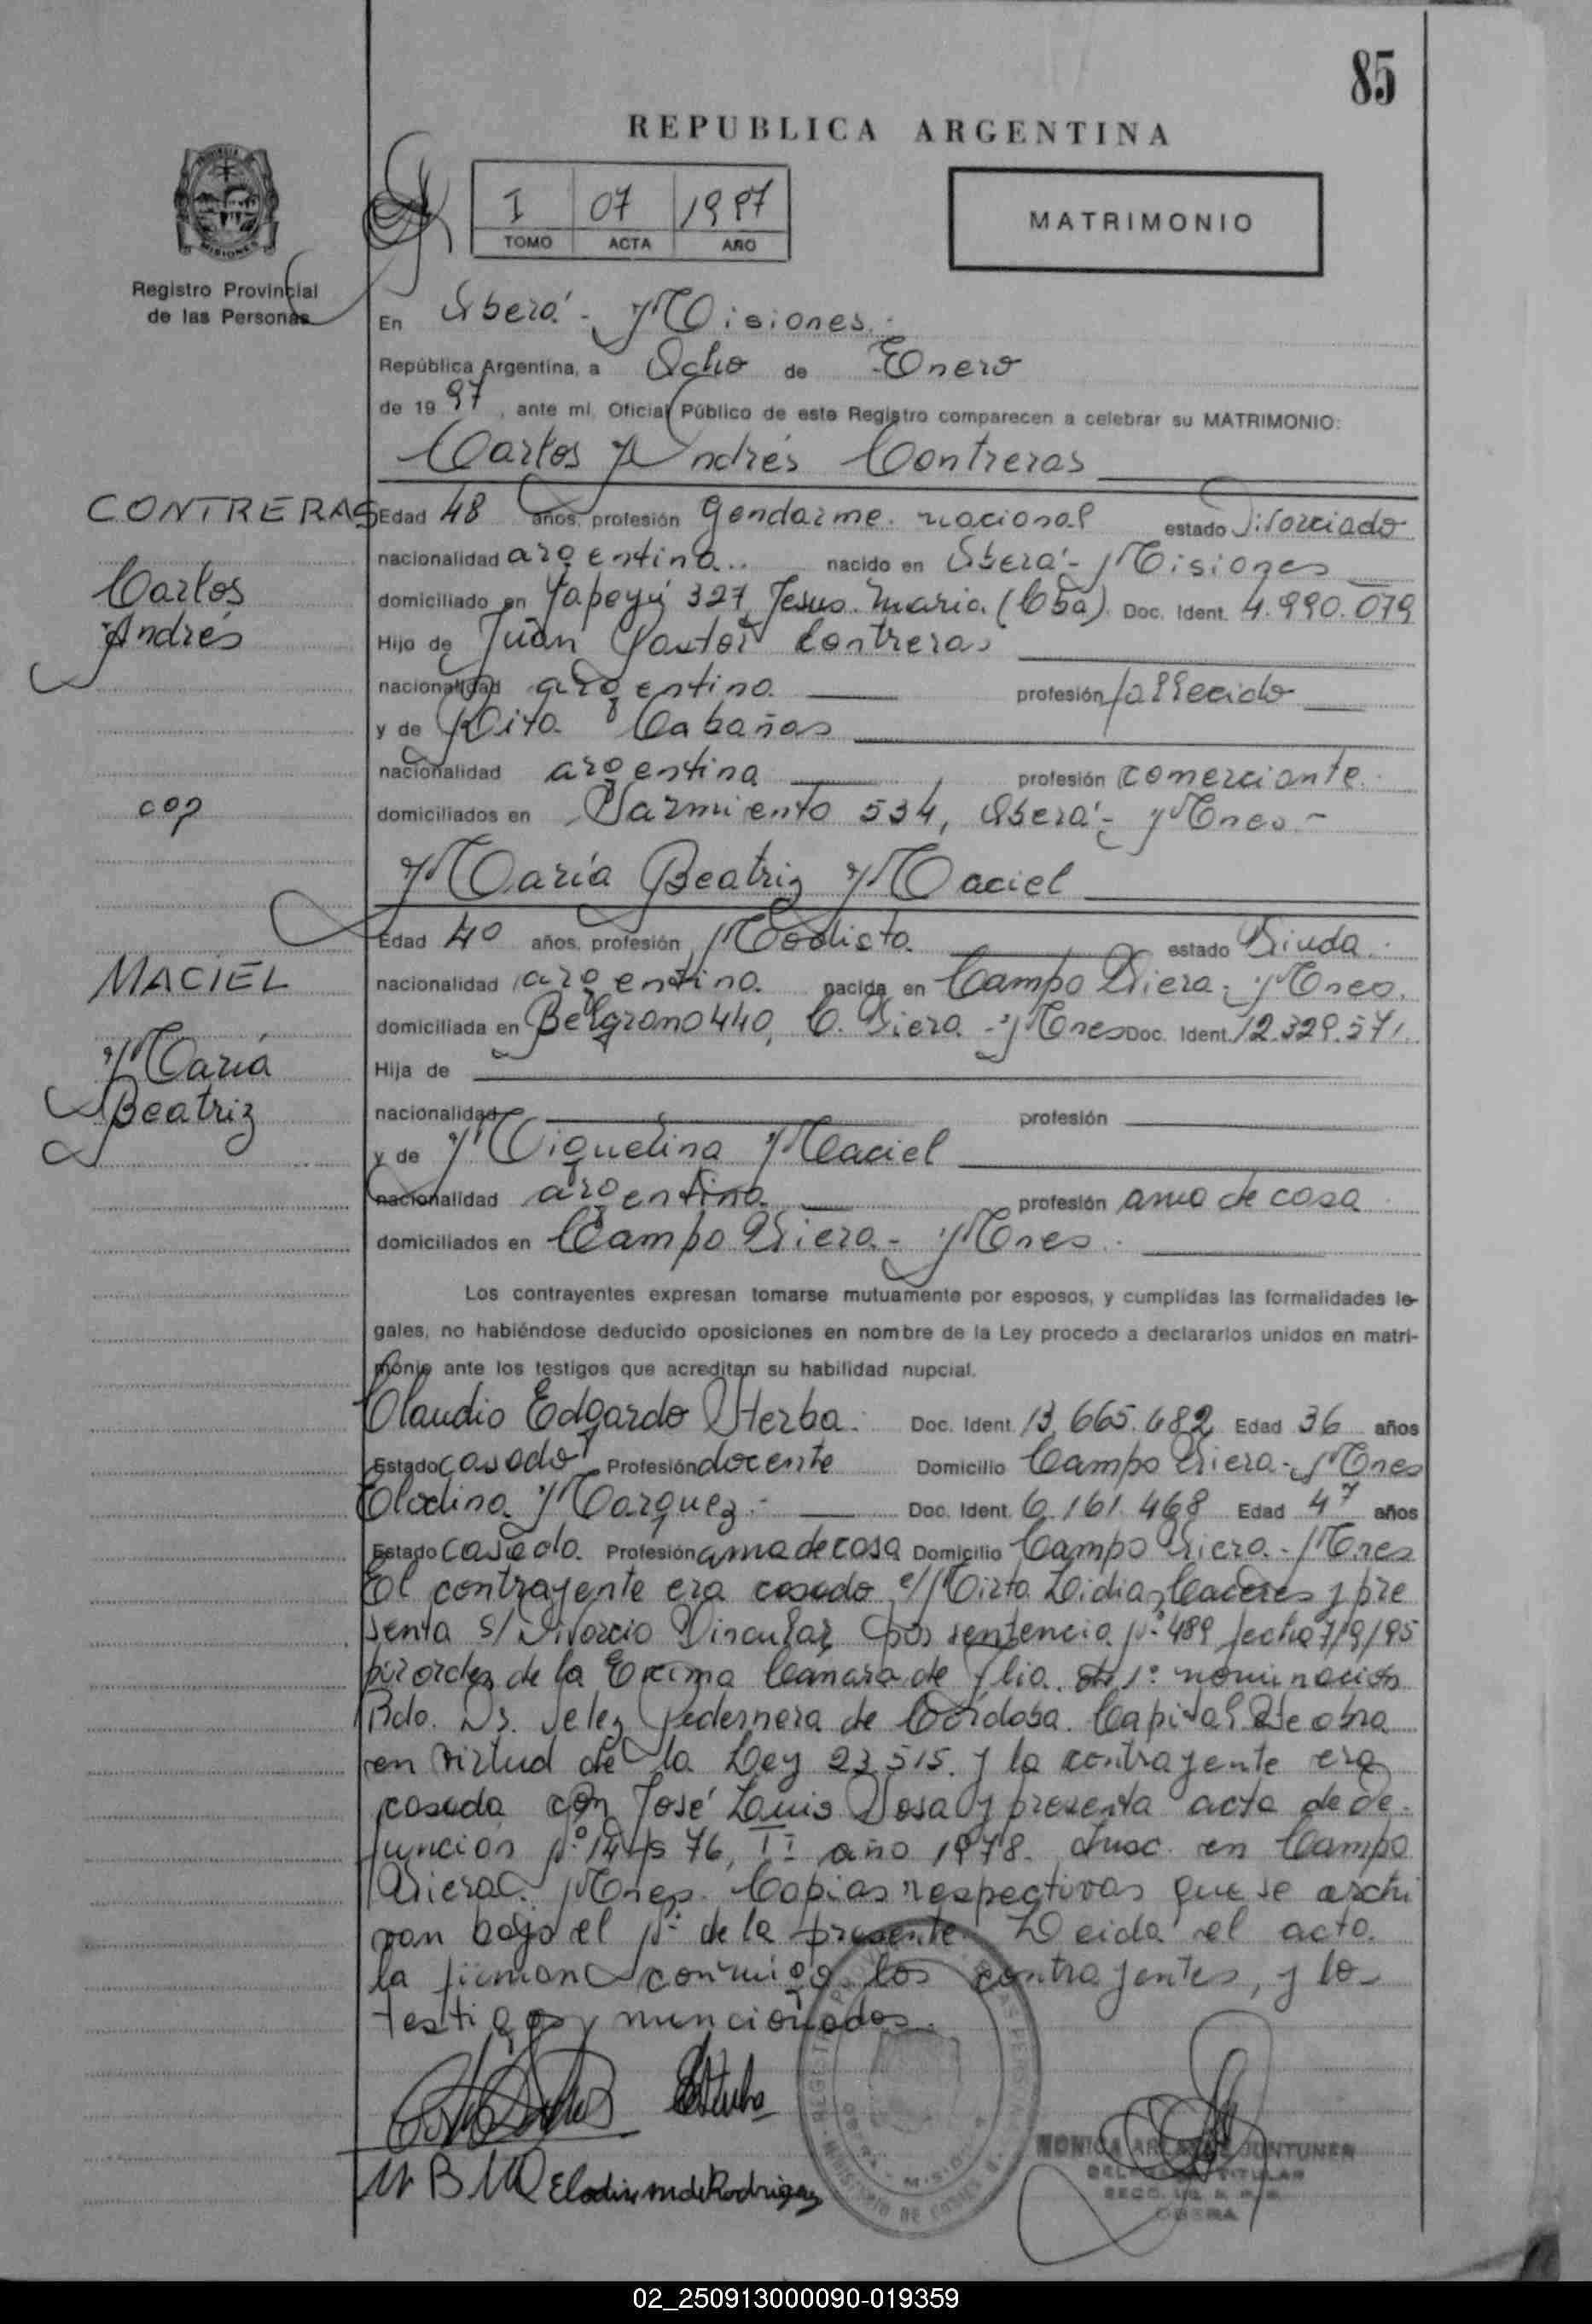 85
REPUBLICA ARGENTINA
I 07 1997
TOMO ACTA AÑO
MATRIMONIO
Registro Provincial
de las Personas
En Oberá - Misiones.-
República Argentina, a Ocho de Enero
de 1997, ante mí, Oficial Público de este Registro comparecen a celebrar su MATRIMONIO:
Carlos Andrés Contreras
CONTRERAS
Carlos
Andrés
Edad 48 años, profesión Gendarme nacional estado Divorciado
nacionalidad argentina.. nacido en Oberá - Misiones
domiciliado en Yapeyú 327, Jesus María. (Cba). Doc. Ident. 4.990.079
Hijo de Juan Pastor Contreras
nacionalidad argentina profesión fallecido
y de Rita Cabañas
nacionalidad argentina profesión comerciante.
domiciliados en Sarmiento 534, Oberá - Mnes.-
cop
María Beatriz Maciel
MACIEL
María
Beatriz
Edad 40 años, profesión Modista estado Viuda.
nacionalidad argentina. nacida en Campo Viera - Mnes.
domiciliada en Belgrano 440, C. Viera - Mnes Doc. Ident. 12.329.571.
Hija de
nacionalidad profesión
y de Miguelina Maciel
nacionalidad argentina profesión ama de casa
domiciliados en Campo Viera.- Mnes.-
Los contrayentes expresan tomarse mutuamente por esposos, y cumplidas las formalidades le-
gales, no habiéndose deducido oposiciones en nombre de la Ley procedo a declararlos unidos en matri-
monio ante los testigos que acreditan su habilidad nupcial.
Claudio Edgardo Sterba.- Doc. Ident. 13.665.682 Edad 36 años
Estado casado Profesión docente Domicilio Campo Viera - Mnes
Elodina Marquez.- Doc. Ident. 6.161.468 Edad 47 años
Estado casada. Profesión ama de casa Domicilio Campo Viera.- Mnes
El contrayente era casado c/ Mirta Lidia Caceres y pre
senta s/ Divorcio Vincular por sentencia Nº 489 fecha 7/9/95
por orden de la Excma Camara de Flia. de 1º nominación
Rdo. Dr. Velez Pedernera de Córdoba Capital
en virtud de la Ley 23.515. y la contrayente era
casada con José Luis Sosa y presenta acta de de-
función Nº 14 76, Iº año 1978. Insc. en Campo
Viera. Mnes. Copias respectivas que se archi
van bajo el Nº de la presente. Leida el acta
la firman conmigo los contrayentes, y los
testigos mencionados.
Elodina M de Rodriguez
MONICA JUNTUNEN
TITULAR
OBERA
02_250913000090-019359